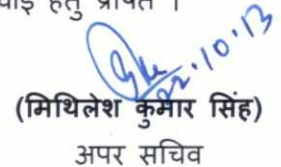 हेतु प्रेषित ।
22.10.13
(मिथिलेश कुमार सिंह)
अपर सचिव